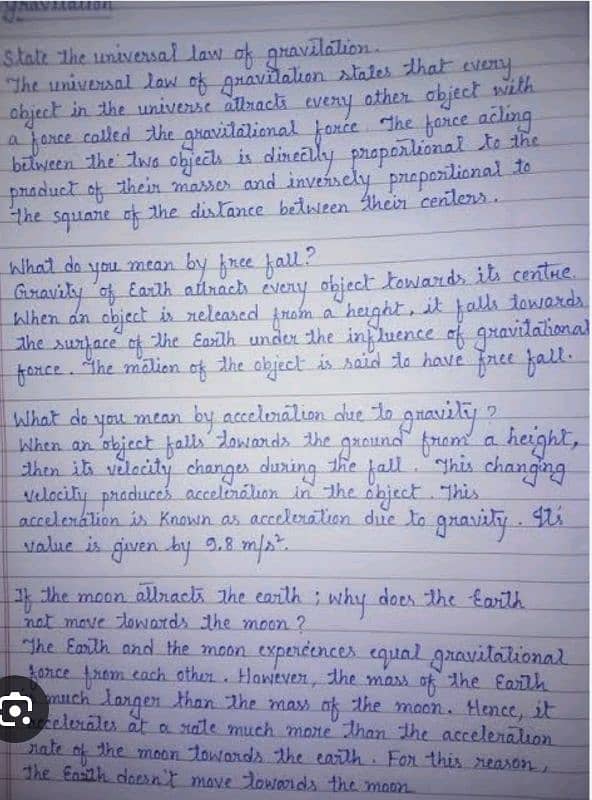 Gravitation
State the universal law of gravitation.
The universal law of gravitation states that every
object in the universe attracts every other object with
a force called the gravitational force. The force acting
between the two objects is directly proportional to the
product of their masses and inversely proportional to
the square of the distance between their centers.
What do you mean by free fall?
Gravity of Earth attracts every object towards its centre.
When an object is released from a height, it falls towards
the surface of the Earth under the influence of gravitational
force. The motion of the object is said to have free fall.
What do you mean by acceleration due to gravity?
When an object falls towards the ground from a height,
then its velocity changes during the fall. This changing
velocity produces acceleration in the object. This
acceleration is known as acceleration due to gravity. Its
value is given by 9.8 m/s².
If the moon attracts the earth; why does the Earth
not move towards the moon?
The Earth and the moon experiences equal gravitational
force from each other. However, the mass of the Earth
much larger than the mass of the moon. Hence, it
accelerates at a rate much more than the acceleration
rate of the moon towards the earth. For this reason,
the Earth doesn't move towards the moon